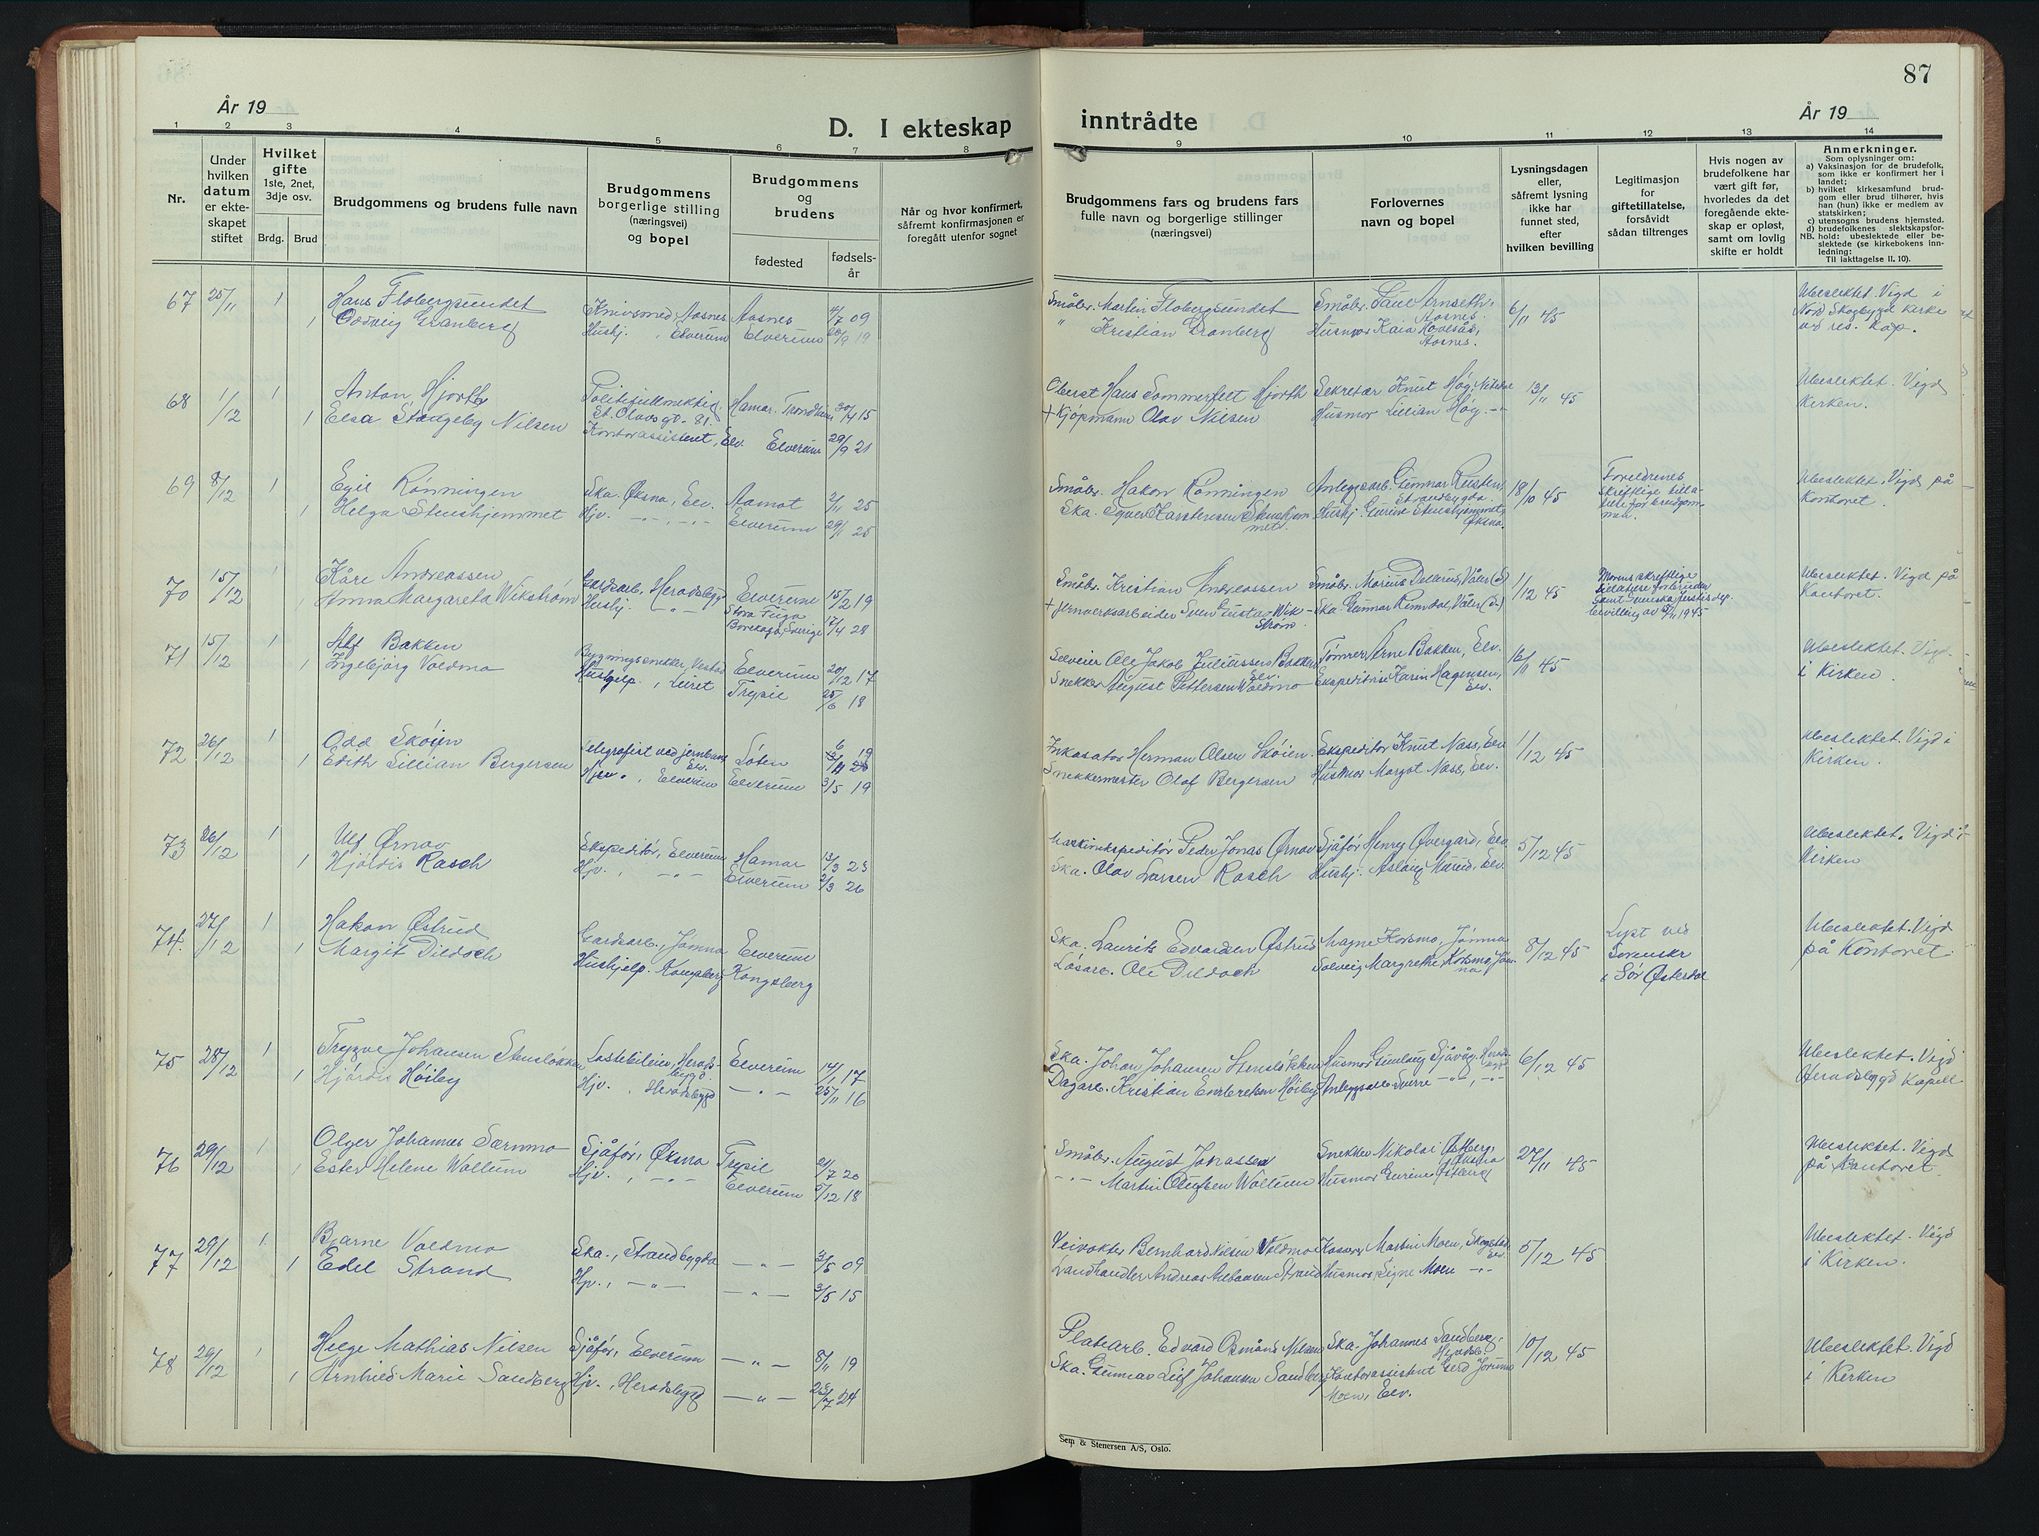 87
År 19
År 19
D. I ekteskap inntrådte
1 2 3 4 5 6 7 8 9 10 11 12 13 14
Nr.
Under hvilken datum er ekteskapet stiftet
Hvilket gifte 1ste, 2net, 3dje osv.
Brdg. Brud
Brudgommens og brudens fulle navn
Brudgommens borgerlige stilling (næringsvei) og bopel
Brudgommens og brudens
fødested
fødselsår
Når og hvor konfirmert, såfremt konfirmasjonen er foregått utenfor sognet
Brudgommens fars og brudens fars fulle navn og borgerlige stillinger (næringsvei)
Forlovernes navn og bopel
Lysningsdagen eller, såfremt lysning ikke har funnet sted, efter hvilken bevilling
Legitimasjon for giftetillatelse, forsåvidt sådan tiltrenges
Hvis nogen av brudefolkene har vært gift før, hvorledes da det foregående ekteskap er opløst, samt om lovlig skifte er holdt
Anmerkninger.
Som oplysninger om:
a) Vaksinasjon for de brudefolk, som ikke er konfirmert her i landet;
b) hvilket kirkesamfund brudgom eller brud tilhører, hvis han (hun) ikke er medlem av statskirken;
c) utensogns brudens hjemsted.
d) brudefolkenes slektskapsforhold: ubeslektede eller beslektede (se kirkebokens innledning;
NB. Til iakttagelse II. 10).
67 25/11 1 Hans Flobergsundet Knivsmed, Aasnes Aasnes 09 Småbr. Martin Flobergsundet Småbr. Paul Arnseth, Aasnes. 6/11 45 Ubeslektet. Vigd i
1 Oddveig Granberg Hushj. , Elverum Elverum 19 " Kristian Granberg Husmor Kaia Hovelsås, Aasnes. Nord Skogbygd kirke
ved res. kap.
68 1/12 1 Anton Hjorth Politifullmektig Hamar. Trondheim 30/4 15 Oberst Hans Sommerfelt Hjorth Sekretær Knut Høg, 13/11 45 Ubeslektet. Vigd
St. Olavs gt. 81.
1 Elsa Stangeby Nilsen Kontorassistent, Elv. Elverum 29/9 21 + Kjøpmann Olav Nilsen Husmor Lillian Høg. -"- Kirken.
69 8/12 1 Egil Rønningen Ska. Øksna, Elv. Aamot 2/11 25 Småbr. Hakon Rønningen Anlegsarb. Gunnar 18/10 45 Foreldrenes Ubeslektet. Vigd på
Strandbygda. skreftlige tilla-
1 Helga Stenshjemmet Hjv. -"- -"- Elverum 29/1 25 Ska. Karstensen Stenshjemmet. Hushj. Gurine Stenshjemmet, Øksna. Kontoret.
70 15/12 1 Kåre Andreassen Gardsarb. Heradsbygd Elverum 15/2 19 Småbr. Kristian Andreassen Småbr. Marius Våler (S) 1/12 45 Morens skreftlige Ubeslektet. Vigd på
1 Anna Margareta Wikstrøm Hushj. -"- Stora Tuga 17/4 28 + jernverksarbeider Sven Gustav Wikstrøm. Ska. Gunnar Våler (S.) tillatelse for bruden Kontoret.
Sverige samt svenska Justisdep.
bevilling av 1945
71 15/12 1 Alf Bakken Bygningssnekker, Elverum 20/12 17 Selveier Ole Jakob Juliussen Bakken Elv. Tømmer Arne Bakken, Elv. 16/11 45 Ubeslektet. Vigd
1 Ingebjørg Voldmo Hushjelp. , Leiret Trysil 25/6 18 Snekker August Pettersen Voldmo Ekspeditrise Karin Hagensen, Elv. i Kirken.
72 26/12 1 Odd Skøien Telegrafist ved jernbanen Elv. Løten 19 Inkasator Herman Olsen Skøien. Ekspeditør Knut Næss, Elv 1/12 45 Ubeslektet. Vigd i
1 Edith Lillian Bergersen Hjv. , Elverum Elverum 3/5 19 Snekkermester Olaf Bergersen Husmor Margot Næss, Elv. Kirken.
73 26/12 1 Ulf Ørnav Ekspeditør, Elverum Hamar 13/3 23 Peder Jonas Ørnav Sjåfør Henry Øvergard, Elv. 5/12 45 Ubeslektet. Vigd i
1 Hjørdis Rasch Hjv. , -"- Elverum 2/3 26 Ska. Olav Larsen Rasch Hushj. Aslaug Elv. Kirken
74. 27/12 1 Hakon Østrud Gardsarb., Jømna Elverum Ska. Laurits Edvardsen Østrud Magne Korsmo, Jømna 8/12 45 Lyst ved Ubeslektet. Vigd
1 Margit Dildoch Hushjelp. Kongsberg Kongsberg Løsarb. Ole Dildoch Solveig Margrethe Korsmo, Jømna Sorenskr på Kontoret.
i Sør Østerdal
75 28/12 1 Trygve Johansen Stensløkken Lastebileier, Heradsbygd. Elverum 14/1 17 Ska. Johan Johansen Stensløkken Husmor Gunlaug Sjåvåg, Heradsbygd 6/12 45 Ubeslektet. Vigd i
1 Hjørdis Høiby Hjv. , Heradsbygd -"- 25/11 16 Dagarb. Kristian Embretsen Høiby Anlegsarb. Sverre -"-, -"- Heradsbygd Kapell
76 29/12 1 Olger Johannes Særnmo Sjåfør, Øksna Trysil 21/7 20 Småbr. August Johassen Snekker Nikolai Østberg, Øksna 27/11 45 Ubeslektet. Vigd
1 Ester Helene Wollum Hjv. , -"- Elverum 5/12 18 -"- Martin Olufsen Wollum Husmor Gurine Østberg på Kontoret
77 29/12 1 Bjarne Voldmo Ska., Strandbygda -"- 3/5 09 Veivokter Bernhard Nilsen Voldmo Martin Moen, Elv. 5/12 45 Ubeslektet. Vigd
1 Edel Strand Hjv., -"- -"- 3/5 15 Landhandler Andreas Albansen Strand Husmor, Signe Moen -"- i Kirken.
78 29/12 1 Helge Mathias Nilsen Sjåfør, Elverum -"- 8/11 19 Platearb. Edvard Osmåns Nilsen Ska. Johannes Sandberg, 10/12 45 Ubeslektet. Vigd
1 Arnhild Marie Sandberg Hjv. , Heradsbygd -"- 23/7 24 Ska. Gunnar Leif Johansen Sandberg Kontorassistent Gerd Jorunn Moen, Elv. i Kirken
Sem & Stenersen A/S, Oslo.